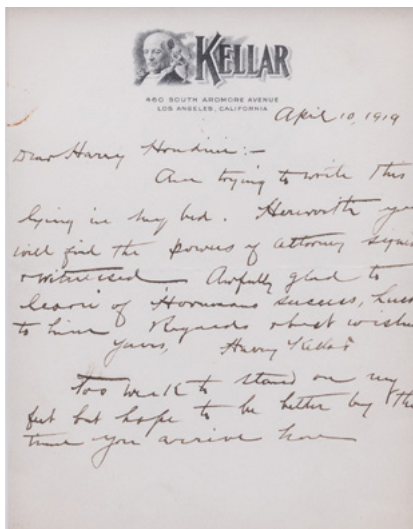 KELLAR
460 SOUTH ARDMORE AVENUE
LOS ANGELES, CALIFORNIA
April 10, 1919
Dear Harry Houdini:-
Am trying to write this
lying in my bed. Herewith
will find the powers of attorney
witnessed Awfully glad to
learn of success,
to him Regards & best
Yours, Harry Kellar
Too weak to stand on my
feet but hope to be better by the
time you arrive